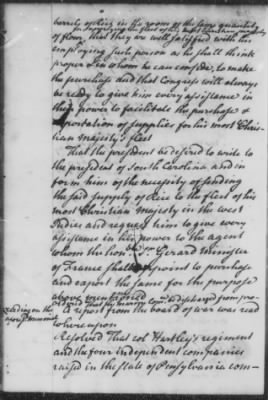 barrels of rice in the room of the same quantity
of flour, that they are well satisfied with his
employing such person as he shall think
proper & in whom he can confide, to make
the purchase and that Congress will always
be ready to give him every assistance in
their power to facilitate the purchase &
exportation of supplies for his most Chris-
tian Majesty's fleet
That the president be desired to write to
the president of South Carolina and in
form him of the necessity of sending
the said supply of rice to the fleet of his
most Christian Majesty in the west
Indies and request him to give every
assistance in his power to the agent
whom the hon^ble Sr. Gerard Minister
of France shall appoint to purchase
and export the same for the purpose
above mentioned
A report from the board of war was read
whereupon
Resolved That col Hartley's regiment
and the four independent companies
raised in the State of Pensylvania com-